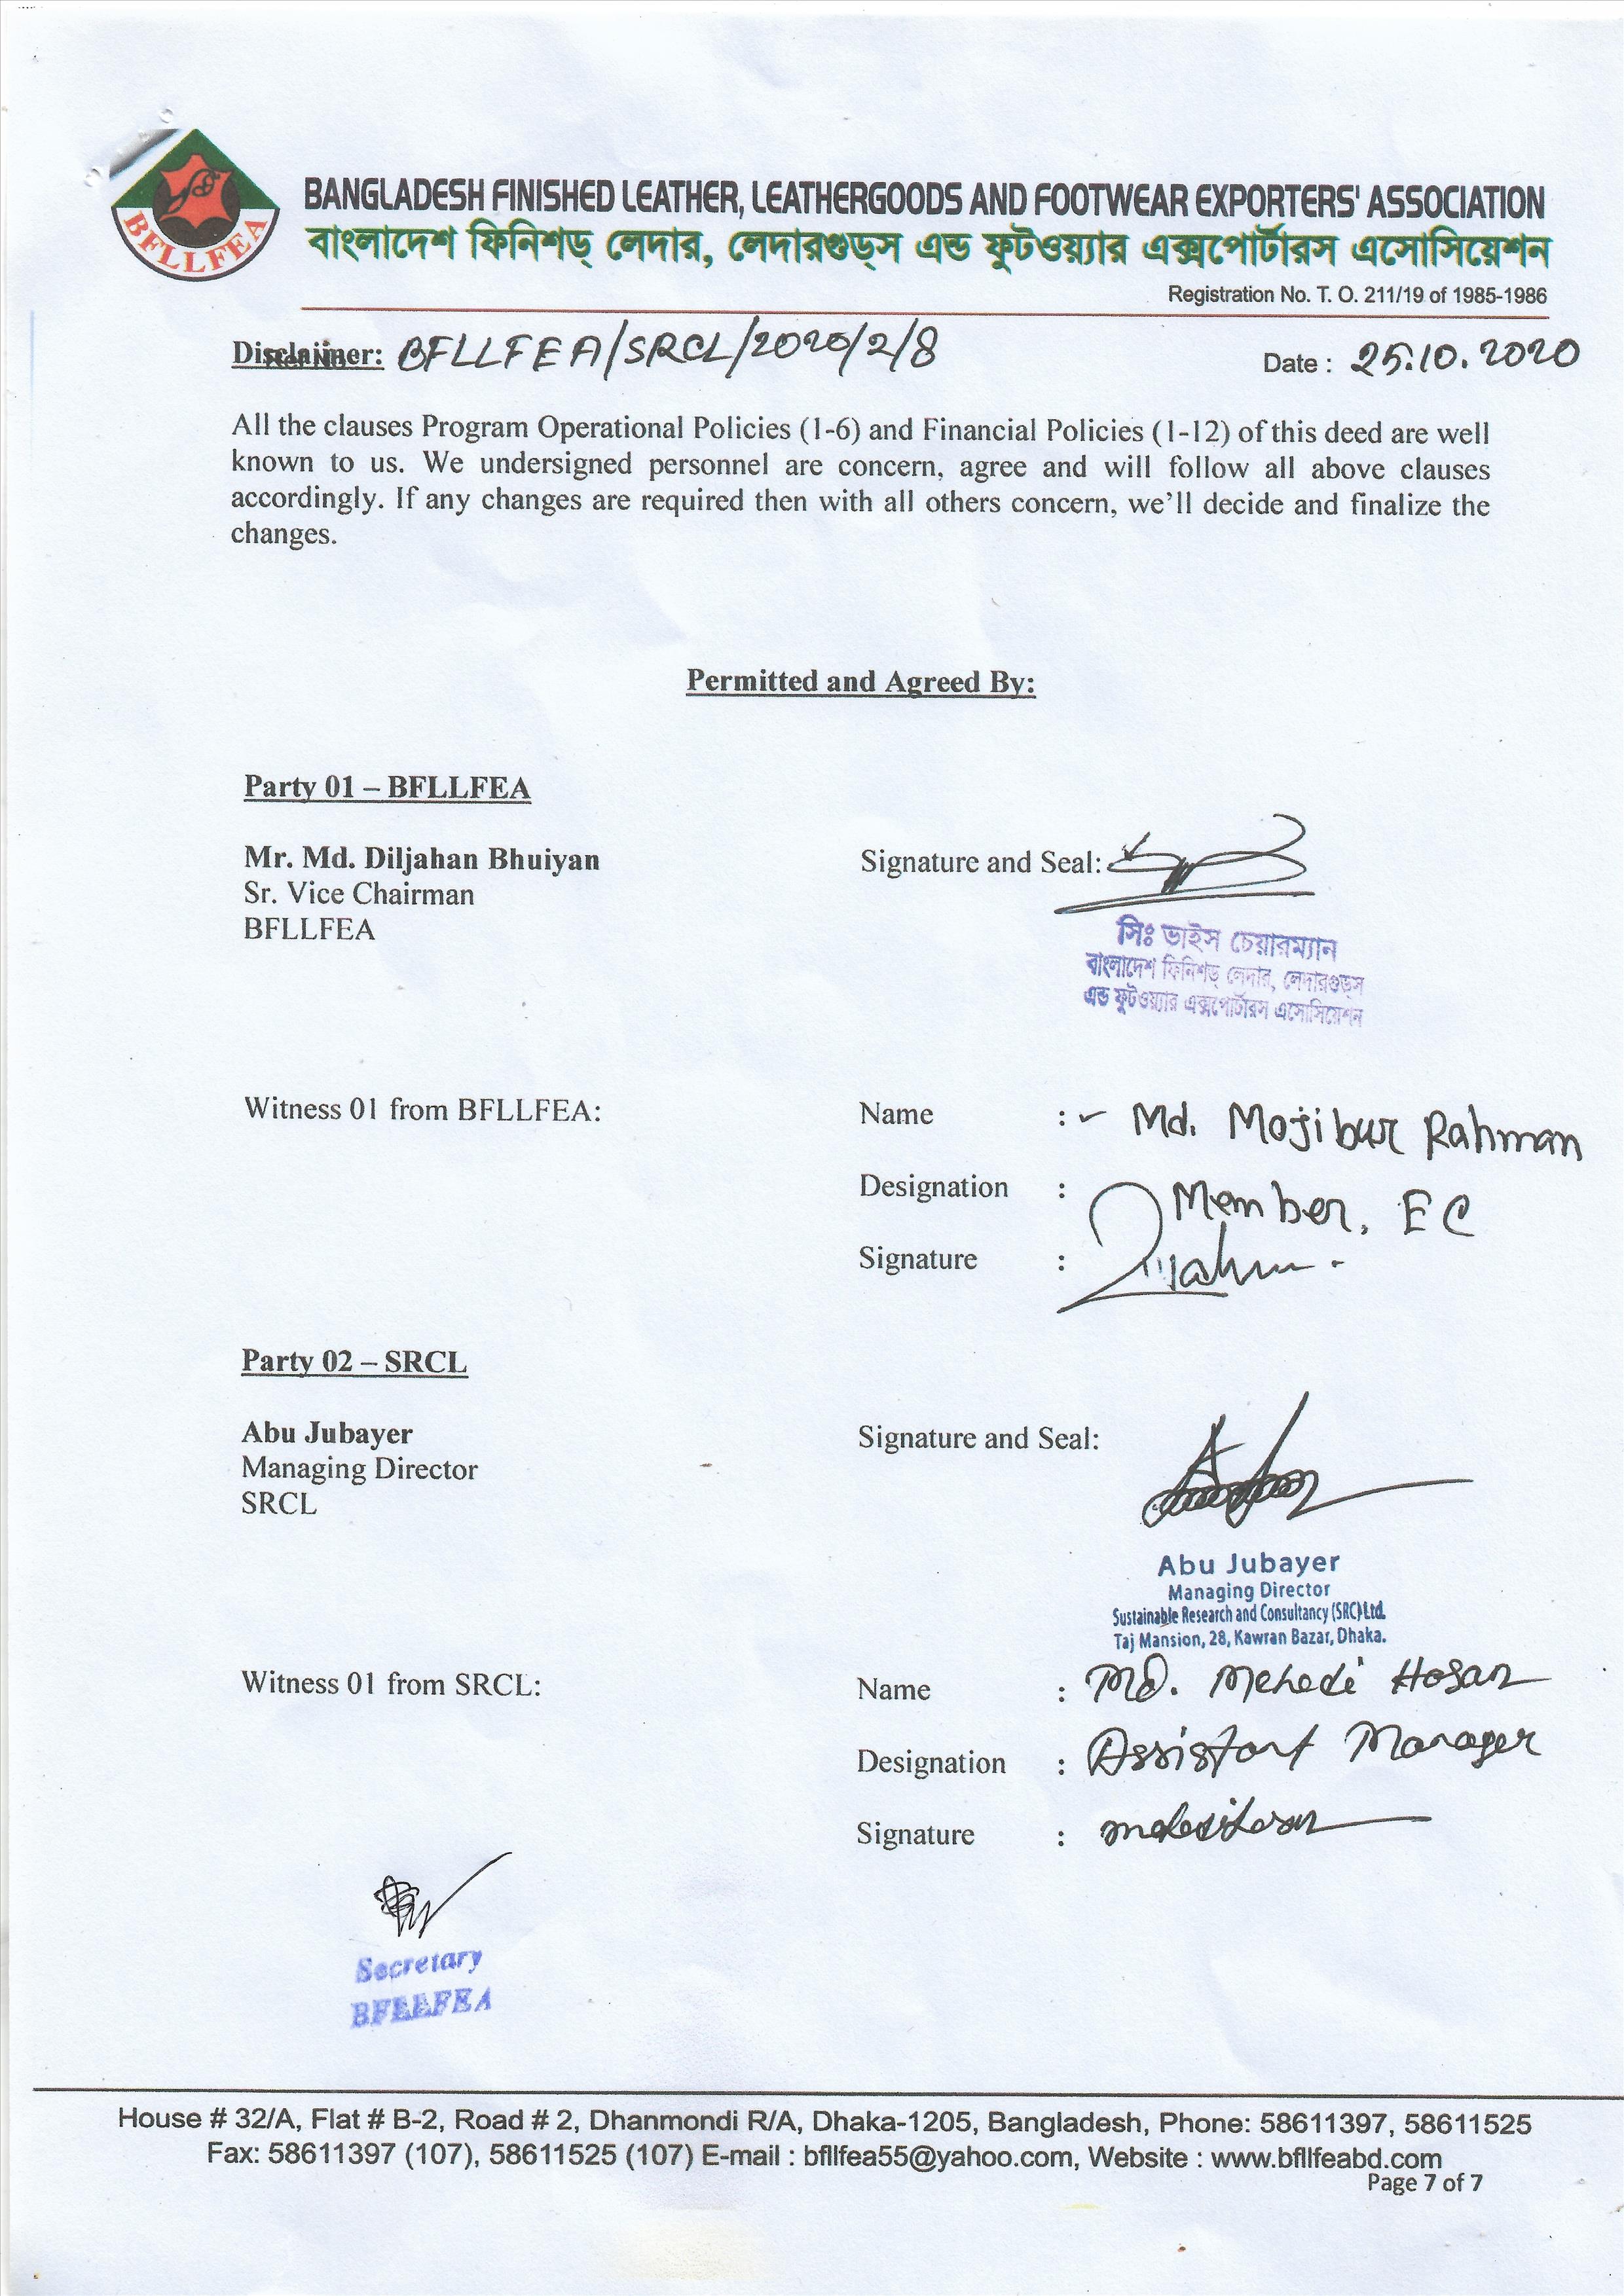 BFLLFEA
BANGLADESH FINISHED LEATHER, LEATHERGOODS AND FOOTWEAR EXPORTERS' ASSOCIATION
বাংলাদেশ ফিনিশড্ লেদার, লেদারগুড্স এন্ড ফুটওয়্যার এক্সপোর্টারস এসোসিয়েশন
Registration No. T. O. 211/19 of 1985-1986
Disclaimer: BFLLFEA/SRCL/2020/2/8 Date : 25.10.2020
All the clauses Program Operational Policies (1-6) and Financial Policies (1-12) of this deed are well
known to us. We undersigned personnel are concern, agree and will follow all above clauses
accordingly. If any changes are required then with all others concern, we'll decide and finalize the
changes.
Permitted and Agreed By:
Party 01 – BFLLFEA
Mr. Md. Diljahan Bhuiyan Signature and Seal:
Sr. Vice Chairman
BFLLFEA
সিঃ ভাইস চেয়ারম্যান
বাংলাদেশ ফিনিশড্ লেদার, লেদারগুড্স
এন্ড ফুটওয়্যার এক্সপোর্টারস এসোসিয়েশন
Witness 01 from BFLLFEA: Name : Md. Mojibur Rahman
Designation : Member, EC
Signature :
Party 02 – SRCL
Abu Jubayer Signature and Seal:
Managing Director
SRCL
Abu Jubayer
Managing Director
Sustainable Research and Consultancy (SRC) Ltd.
Taj Mansion, 28, Kawran Bazar, Dhaka.
Witness 01 from SRCL: Name : MD. Mehedi Hosan
Designation : Assistant Manager
Signature :
Secretary
BFLLFEA
House # 32/A, Flat # B-2, Road # 2, Dhanmondi R/A, Dhaka-1205, Bangladesh, Phone: 58611397, 58611525
Fax: 58611397 (107), 58611525 (107) E-mail : bfllfea55@yahoo.com, Website : www.bfllfeabd.com
Page 7 of 7